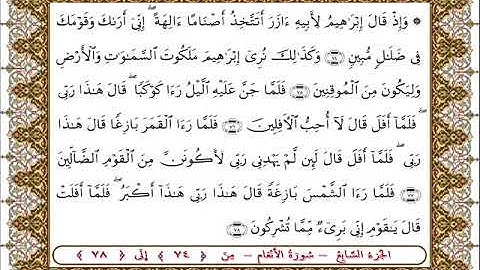 ۞ وَإِذْ قَالَ إِبْرَٰهِيمُ لِأَبِيهِ ءَازَرَ أَتَتَّخِذُ أَصْنَامًا ءَالِهَةً ۖ إِنِّىٓ أَرَىٰكَ وَقَوْمَكَ
فِى ضَلَٰلٍ مُّبِينٍ ﴿٧٤﴾ وَكَذَٰلِكَ نُرِىٓ إِبْرَٰهِيمَ مَلَكُوتَ ٱلسَّمَٰوَٰتِ وَٱلْأَرْضِ
وَلِيَكُونَ مِنَ ٱلْمُوقِنِينَ ﴿٧٥﴾ فَلَمَّا جَنَّ عَلَيْهِ ٱلَّيْلُ رَءَا كَوْكَبًا ۖ قَالَ هَٰذَا رَبِّى
ۖ فَلَمَّآ أَفَلَ قَالَ لَآ أُحِبُّ ٱلْءَافِلِينَ ﴿٧٦﴾ فَلَمَّا رَءَا ٱلْقَمَرَ بَازِغًا قَالَ هَٰذَا
رَبِّى ۖ فَلَمَّآ أَفَلَ قَالَ لَئِن لَّمْ يَهْدِنِى رَبِّى لَأَكُونَنَّ مِنَ ٱلْقَوْمِ ٱلضَّآلِّينَ
﴿٧٧﴾ فَلَمَّا رَءَا ٱلشَّمْسَ بَازِغَةً قَالَ هَٰذَا رَبِّى هَٰذَآ أَكْبَرُ ۖ فَلَمَّآ أَفَلَتْ
قَالَ يَٰقَوْمِ إِنِّى بَرِىٓءٌ مِّمَّا تُشْرِكُونَ ﴿٧٨﴾
الجزء السابع – سورة الأنعام – من ﴿ ٧٤ ﴾ إلى ﴿ ٧٨ ﴾